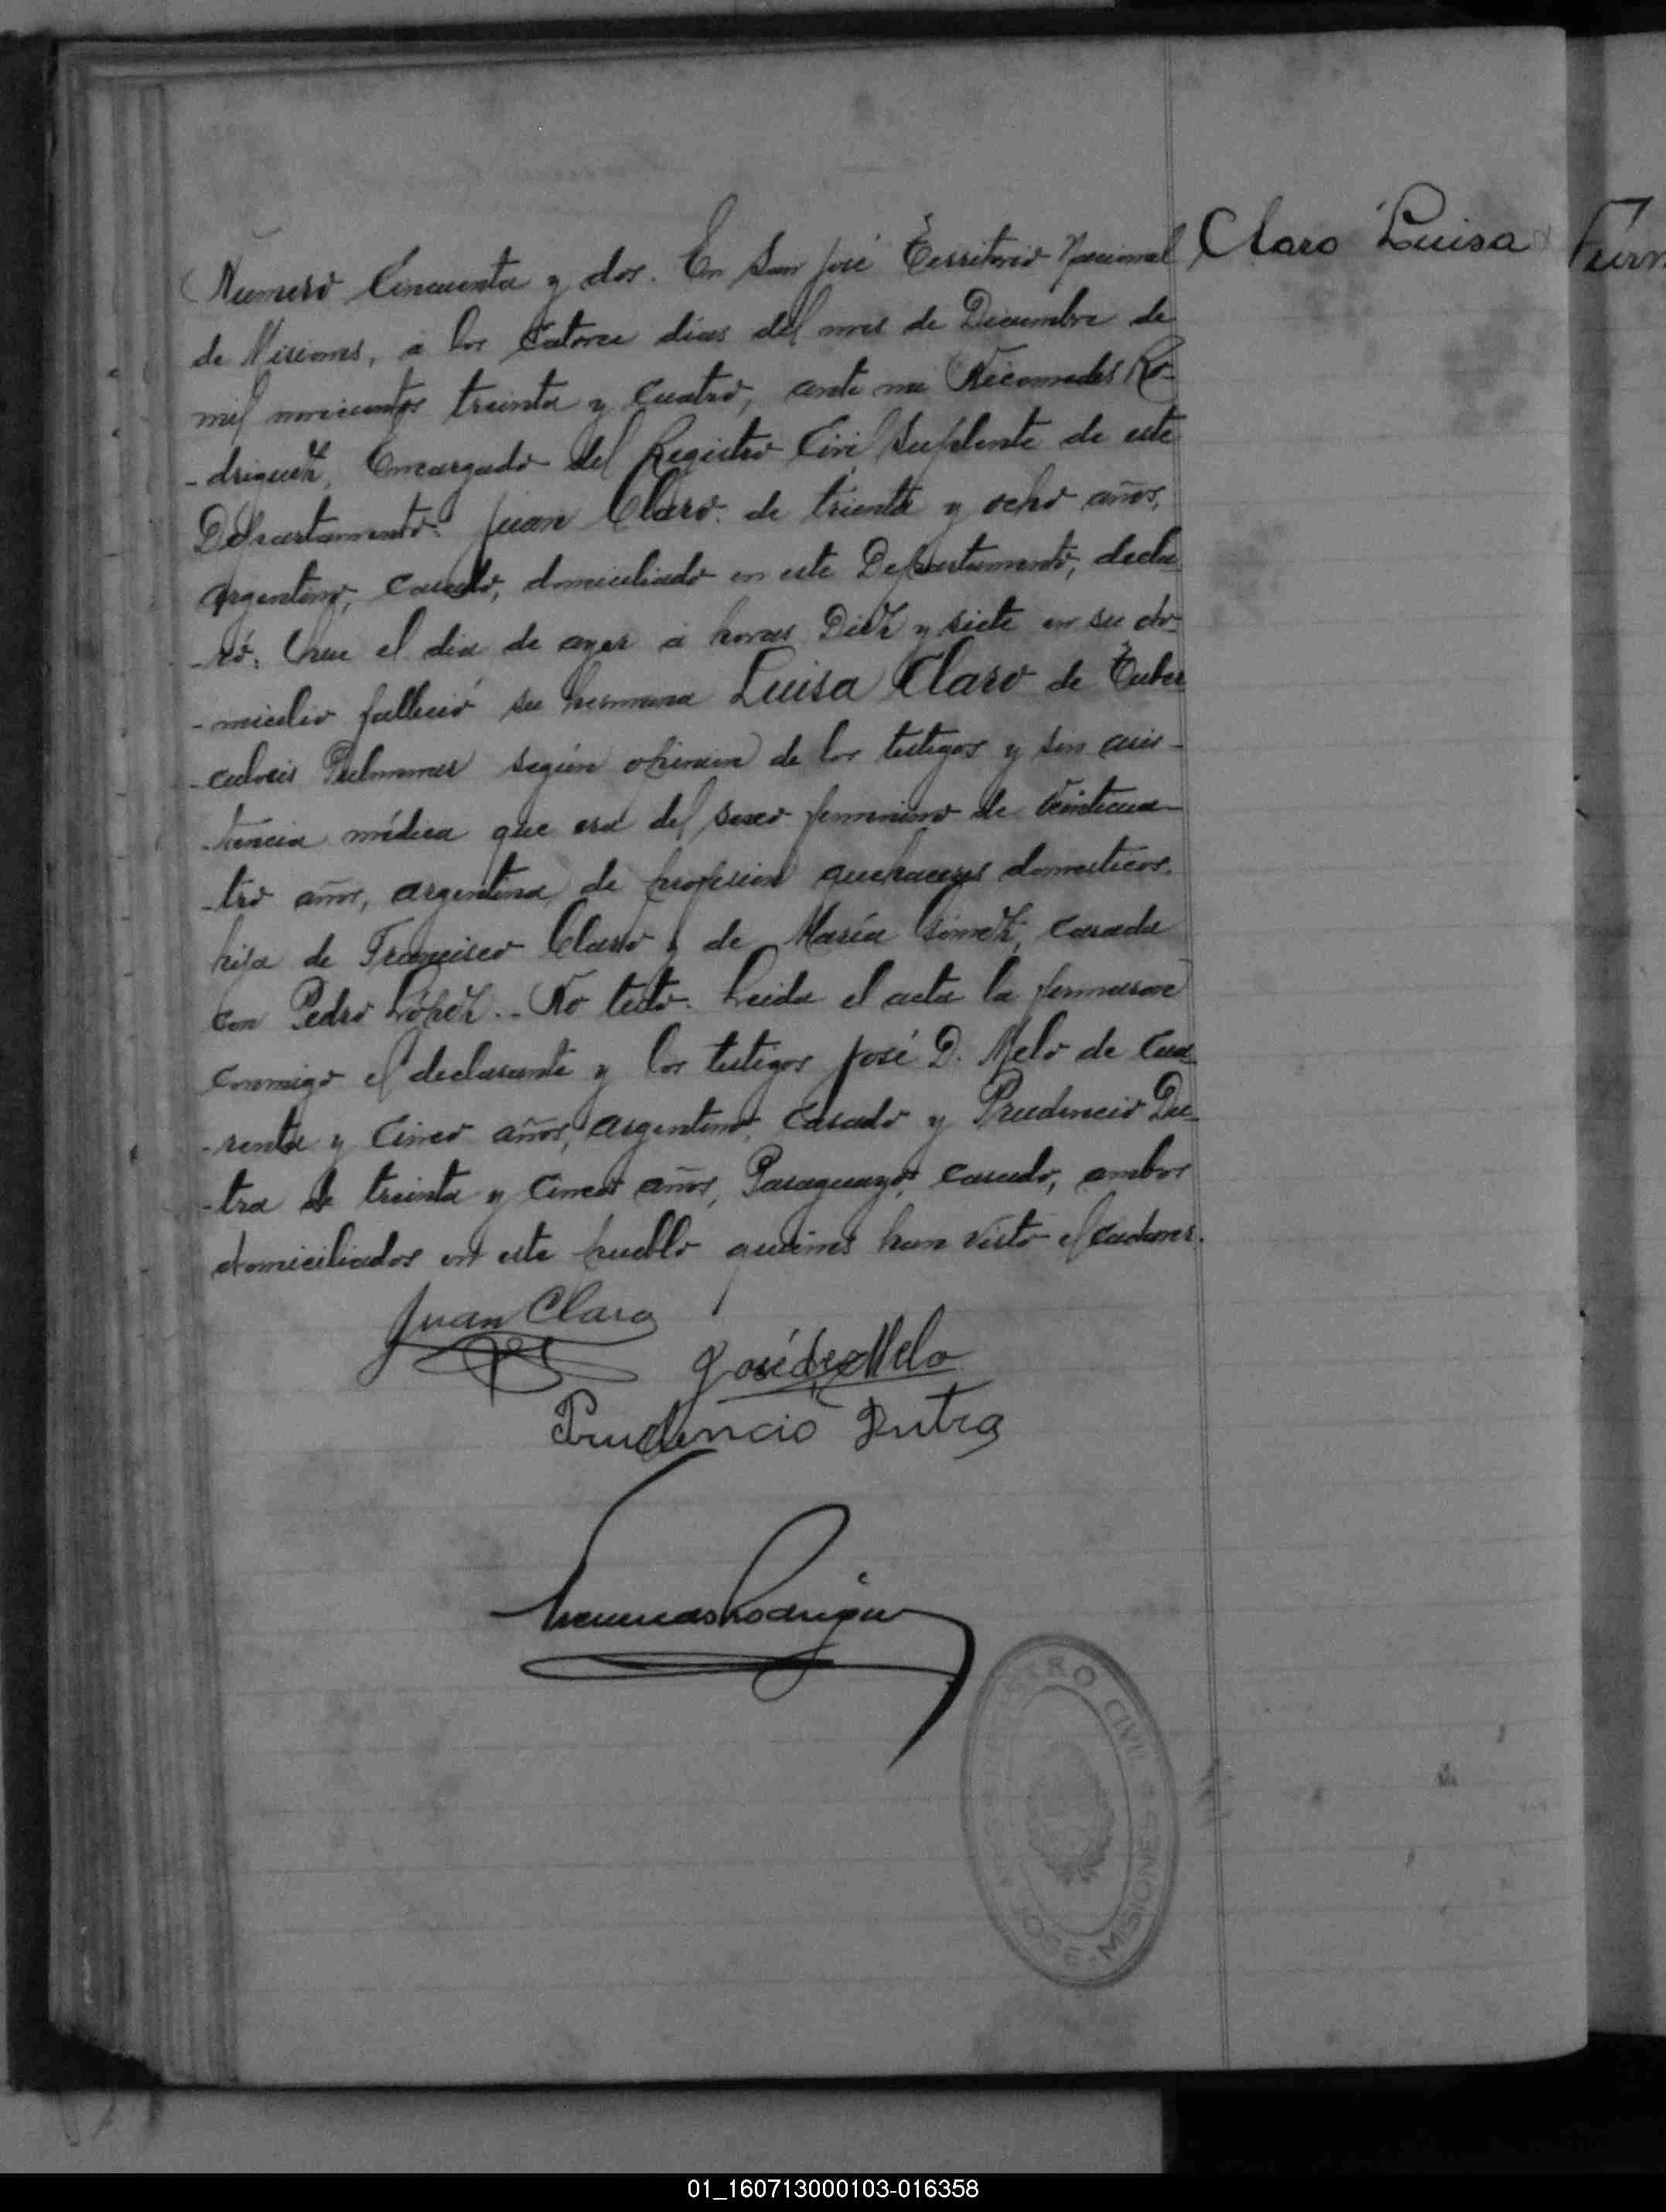 Claro Luisa
Número Cincuenta y dos. En San José Territorio Nacional
de Misiones, a los Catorce dias del mes de Diciembre de
mil novecientos treinta y cuatro, ante mi Nicomedes Ro-
-driguez, Encargado del Registro Civil Suplente de este
Departamento. Juan Claro. de treinta y ocho años,
argentino, casado, domiciliado en este Departamento, decla
-ró: Que el dia de ayer a horas Diez y siete en su do-
-micilio falleció su hermana Luisa Claro de Tuber
-culosis Pulmonar según opinion de los testigos y sin asis-
-tencia médica que era del sexo femenino de veinticua-
-tro años, argentina, de profesion quehaceres domesticos.
hija de Francisco Claro y de María Gómez, casada
con Pedro López.- No testó. Leida el acta la firmaron
conmigo el declarante y los testigos José D. Melo de Cua-
-renta y Cinco años, argentino, Casado y Prudencio Du-
-tra de treinta y Cinco años, Paraguayo, casado, ambos
domiciliados en este pueblo quienes han visto el cadaver.
Juan Claro
José de Melo
Prudencio Dutra
REGISTRO CIVIL
SAN JOSE - MISIONES
01_160713000103-016358